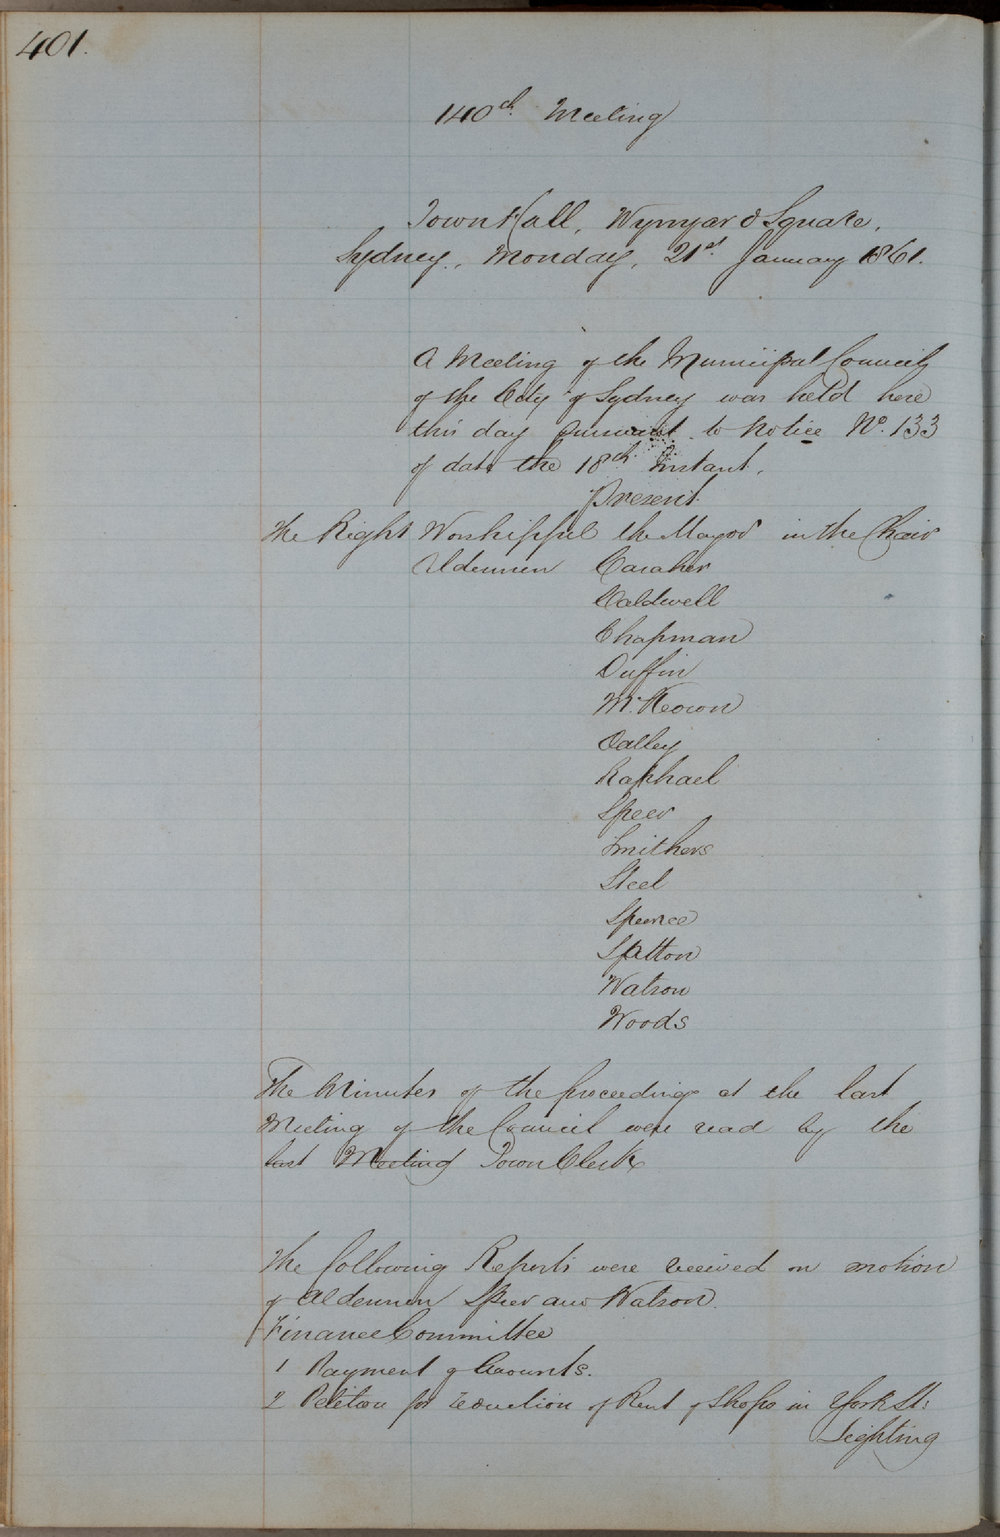 401.
140th. Meeting
Town Hall, Wynyard Square,
Sydney, Monday, 21st. January 1861.
A Meeting of the Municipal Council
of the City of Sydney was held here
this day pursuant to Notice No. 133
of date the 18th. Instant.
Present
The Right Worshipful the Mayor in the Chair
Aldermen Caraher
Caldwell
Chapman
Duffin
McKeown
Oatley
Raphael
Speer
Smithers
Steel
Spence
Sutton
Watson
Woods
The Minutes of the proceedings at the last
Meeting of the Council were read by the
last Meeting Town Clerk
The following Reports were received on motion
of Aldermen Speer and Watson.
Finance Committee
1 Payment of Accounts.
2 Petition for reduction of Rent of Shops in York St:
Lighting